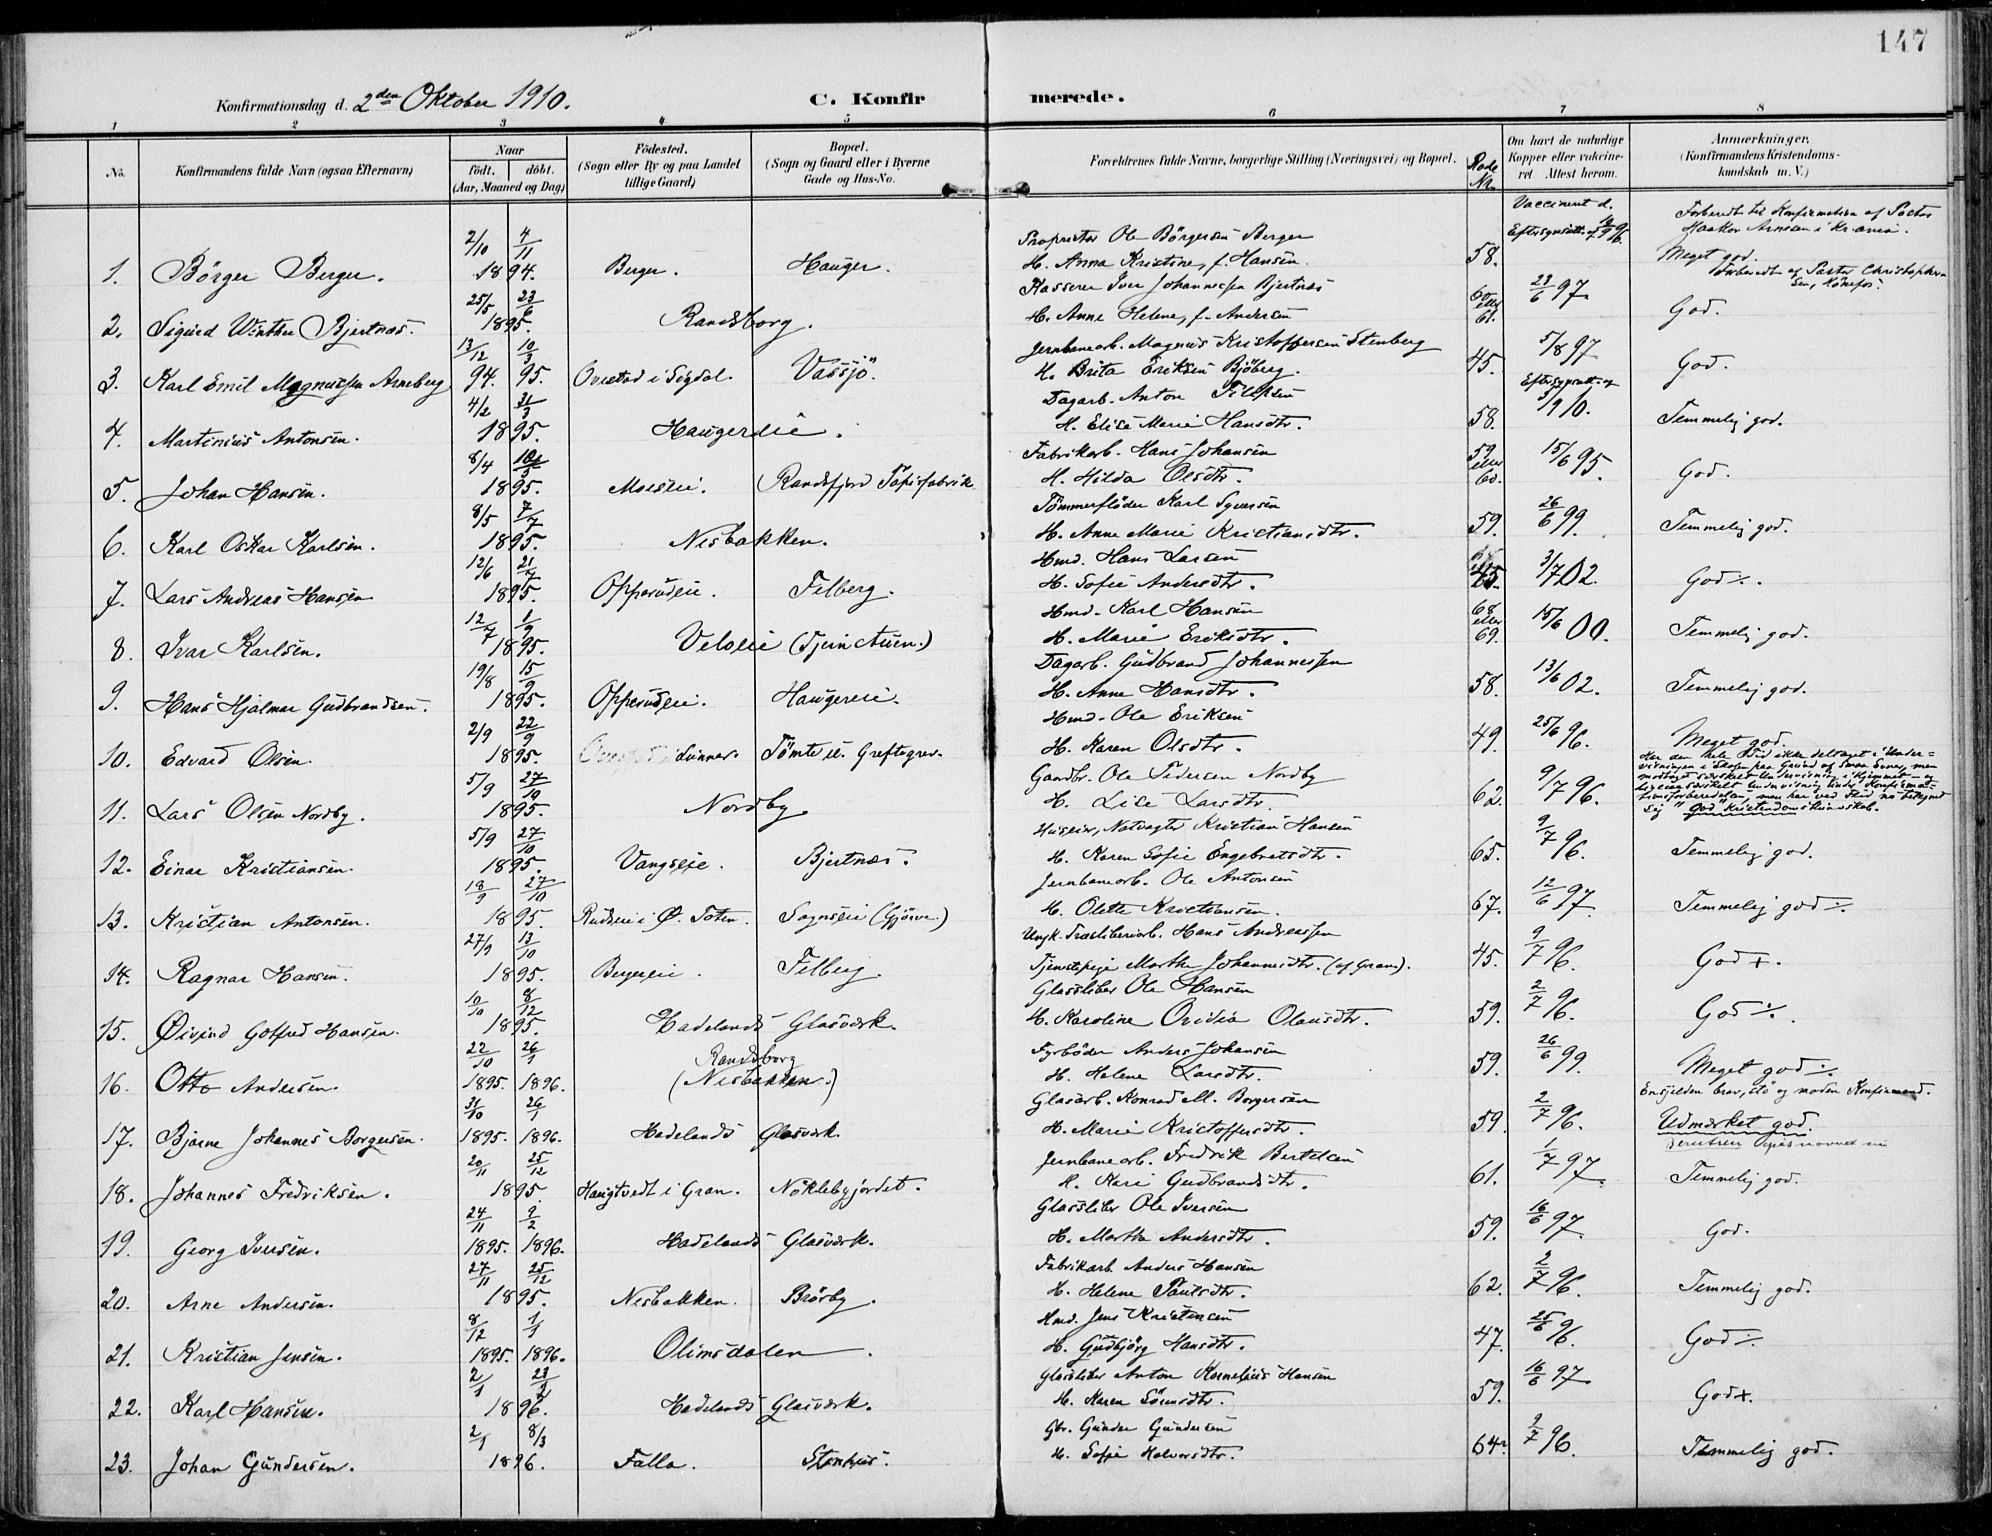 147
Konfirmationsdag d. 2den Oktober 1910.
C. Konfirmerede.
1 2 3 4 5 6 7 8
No.
Konfirmandens fulde Navn (ogsaa Efternavn)
Naar
født. døbt.
(Aar, Maaned og Dag)
Fødested.
(Sogn eller By og paa Landet
tillige Gaard)
Bopæl.
(Sogn og Gaard eller i Byerne
Gade og Hus-No.
Forældrenes fulde Navne, borgerlige Stilling (Næringsvei) og Bopæl.
Rode Nr.
Om havt de naturlige
Kopper eller vakcine-
ret Attest herom.
Anmærkninger.
(Konfirmandens Kristendoms-
kundskab m. V.)
1. Börger Berger. 2/10 4/11 1894. Berger. Hauger. Proprietær Ole Börgersen Berger H. Anna Kristine, f. Hansen. 58. Vaccineret d. Forberedt til Konfirmation af Pastor Haakon Arnesen i Kr.ania. Meget god.
2. Sigurd Winther Bjertnæs. 25/5 23/6 1895. Randsborg. Kasserer Iver Johannessen Bjertnæs H. Anne Helene, f. Andersen 60 eller 61. 23/6 97. Forberedt af Pastor Christophersen, Hönefos. God.
3. Karl Emil Magnussen Arneberg 13/12 94. 10/3 95. Ovestad i Sigdal. Vassjö. Jernbanearb. Magnus Kristoffersen Stenberg H. Brita Eriksen Bjöberg. 45. 5/8 97 God.
4. Martinius Antonsen. 4/2 31/3 1895. Haugerdie. Dagarb. Anton Filipsen H. Elise Marie Hansdtr. 58. 3/9 10. Temmelig god.
5. Johan Hansen. 8/4 1895. Moeseie. Randsfjord Papirfabrik Fabrikarb. Hans Johansen H. Hilda Olsdtr. 59 eller 60. 15/6 95. God.
6. Karl Oskar Karlsen. 8/5 7/7 1895. Nesbakken. Tömmerflöder Karl Syversen H. Anne Marie Kristiansdtr. 59. 26/6 99. Temmelig god.
7. Lars Andreas Hansen 12/6 21/7 1895. Opperudeie. Felberg. Hmd. Hans Larsen H. Sofie Andersdtr. 45. 3/7 02. God ÷.
8. Ivar Karlsen. 12/7 1/9 1895. Velseie (Tjernstuen.) Hmd. Karl Hansen H. Marie Eriksdtr. 68 eller 69. 15/6 00. Temmelig god.
9. Hans Hjalmar Gudbrandsen. 19/8 15/9 1895. Opperudeie. Haugereie. Dagarb. Gudbrand Johannessen H. Anne Hansdtr. 58. 13/6 02. Temmelig god.
10. Edvard Olsen. 2/9 22/9 1895. Lunner. Tömte u. Greftegrev. Hmd. Ole Eriksen H. Karen Olsdtr. 49. 25/6 96. Meget god.
11. Lars Olsen Nordby. 5/9 27/10 1895. Nordby. Gaardbr. Ole Pedersen Nordby H. Lise Larsdtr. 62. 9/7 96. Har den hele Tid ikke deltaget i Undervisningen i Skolen paa Grund af smaa Evner, men modtaget særskilt Undervisning i Hjemmet - og ligesaa særskilt Undervisning under Konfirmationsforberedelsen, men har ved Flid nu tilegnet sig "God" Kristendomskundskab.
12. Einar Kristiansen. 5/9 27/10 1895. Vangseie. Bjertnæs. Huseier, Natvagter Kristian Hansen H. Karen Sofie Engebretsdtr. 65. 9/7 96. Temmelig god.
13. Kristian Antonsen. 18/9 27/10 1895. Rudseie i Ö. Toten. Sognseie (Gjörve.) Jernbanearb. Ole Antonsen H. Olette Kristiansen. 67. 12/6 97. Temmelig god ÷.
14. Ragnar Hansen. 27/9 13/10 1895. Bergereie. Felberg. Ungk. Træsliberiarb. Hans Andreassen Tjenestepige Marthe Johannesdtr. (af Gran). 45. 9/7 96. God +.
15. Øivind Gotfred Hansen. 10/10 8/12 1895. Hadelands Glasværk. Glassliber Ole Hansen H. Karoline Ovidia Olausdtr. 59. 2/7 96. God ÷.
16. Otto Andersen. 22/10 1895. 26/1 1896. Randsborg (Nesbakken.) Fyrböder Anders Johansen H. Helene Larsdtr. 59. 26/6 99. Meget god ÷
17. Bjarne Johannes Borgersen. 31/10 1895. 26/1 1896. Hadelands Glasværk. Glasarb. Konrad M. Borgersen H. Marie Kristoffersdtr. 59. 2/7 96. En sjelden brav, stö og moden Konfirmand. Udmærket god.
18. Johannes Fredriksen. 20/11 25/12 1895 Haugtvedt i Gran. Nöklebyjordet. Jernbanearb. Fredrik Bertelsen H. Kari Gudbrandsdtr. 61. 1/7 97. Temmelig god.
19. Georg Iversen. 24/11 1895. 9/2 1896. Hadelands Glasværk. Glassliber Ole Iversen H. Marthe Andersdtr. 59. 16/6 97. God.
20. Arne Andersen. 27/11 25/12 1895. Nesbakken. Brörby. Fabrikarb. Anders Hansen H. Helene Paulsdtr. 62. 2/7 96. Temmelig god.
21. Kristian Jensen. 8/12 1895. 1/1 1896. Olimsdalen. Hmd. Jens Kristensen H. Gudbjörg Hansdtr. 47. 25/6 96. God ÷.
22. Karl Hansen. 2/1 1896. Hadelands Glasværk. Glassliber Anton Kornelius Hansen H. Karen Sörensdtr. 59. 16/6 97 God +.
23. Johan Gundersen. 2/1 8/3 1896. Falla. Stenhus. Gbr. Gunder Gundersen H. Sofie Halvorsdtr. 64. 9/7 96. Temmelig god.